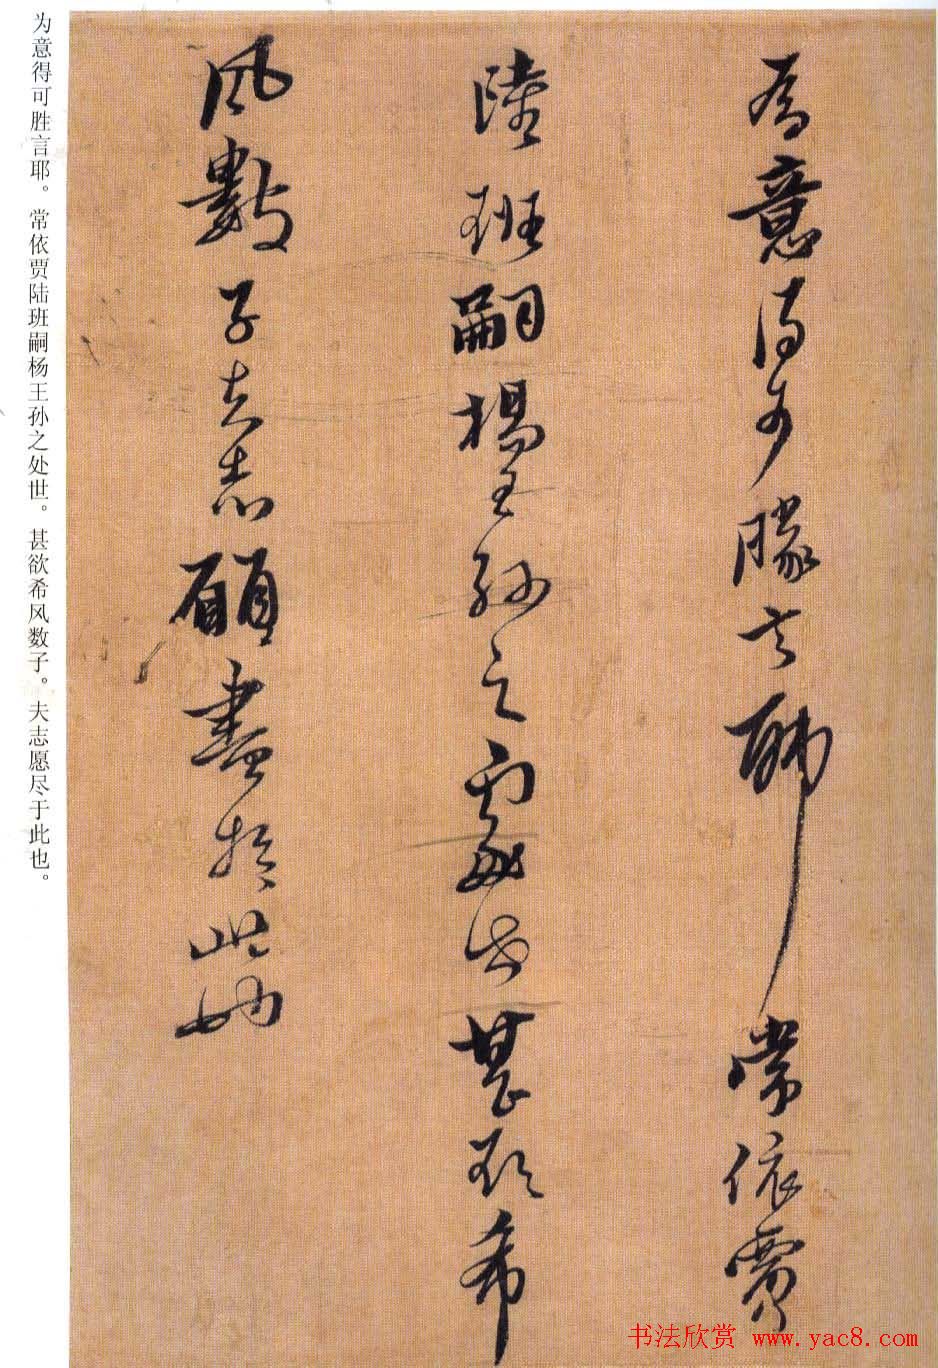 為意得可勝言耶常依賈
陸班嗣楊王孫之處世甚欲希
風數子夫志願盡於此也
为意得可胜言耶。常依贾陆班嗣杨王孙之处世。甚欲希风数子。夫志愿尽于此也。
书法欣赏 www.yac8.com